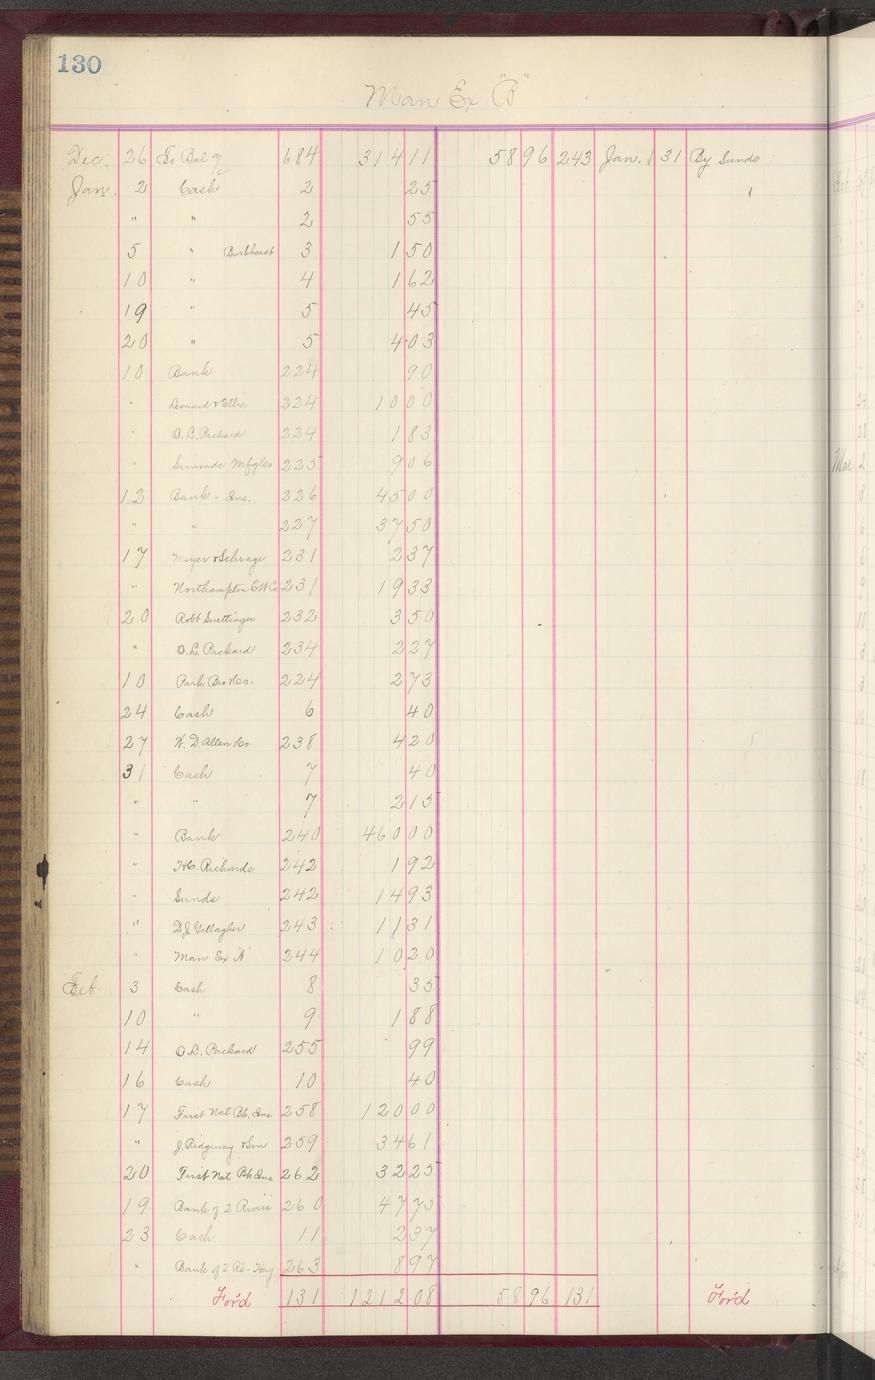 130
Man Ex "B"
Dec. 26 To Bal of 684 314 11 58 96 243 Jan. 31 By Sunds
Jan. 2 Cash 2 25
" " 2 55
5 " Burkhardt 3 1 50
10 " 4 1 62
19 " 5 45
20 " 5 4 03
10 Bank 224 90
" Leonard & Ellis 224 10 00
" O. L. Packard 224 1 83
" Mfg Co 225 9 06
12 Bank - Ins. 226 45 00
" " 227 37 50
17 Meyer & Selvage 231 2 37
" Northampton E W Co 231 19 33
20 Robt Suettinger 232 3 50
" O. L. Packard 234 2 27
10 Park Bro & Co. 224 2 73
24 Cash 6 40
27 W. D. Allen & Co 238 4 20
31 Cash 7 40
" " 7 2 15
" Bank 240 460 00
" H. C. Richards 242 1 92
" Sunds 242 14 93
" D J Gallagher 243 11 31
" Man Ex "A" 244 10 20
Feb. 3 Cash 8 35
10 " 9 1 88
14 O. L. Packard 255 99
16 Cash 10 40
17 First Nat Bk. Ins 258 120 00
" J. Ridgeway & Son 259 34 61
20 First Nat Bk. Ins 262 32 25
19 Bank of 2 Rivers 260 47 75
23 Cash 11 2 37
" Bank of 2 Rs - Hay 263 8 97
For'd 131 1212 08 58 96 131 For'd